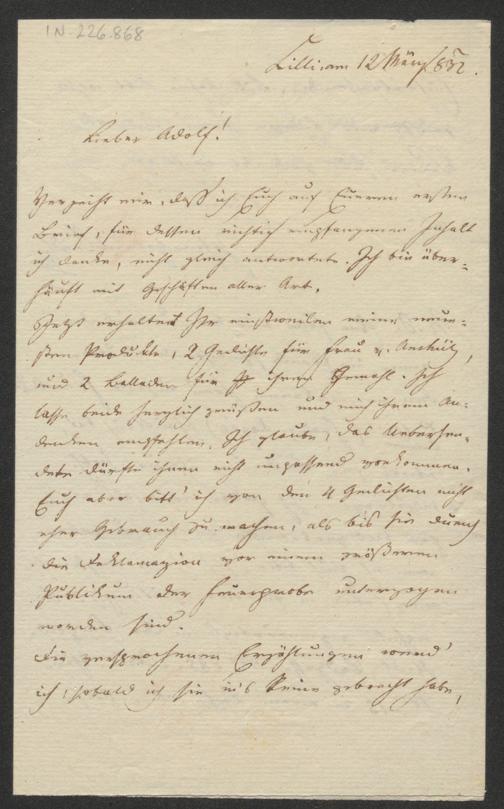 IN-226.868
Cilli am 12 März 832.
Lieber Adolf!
Verzeiht mir, daß ich Euch auf Eueren ersten
Brief, für dessen richtig empfangenen Inhalt
ich danke, nicht gleich antwortete. Ich bin über-
häuft mit Geschäften aller Art.
Jetzt erhaltet Ihr einstweilen meine neue-
sten Produkte, 2 Gedichte für Frau v. Anschütz,
und 2 Balladen für ihren Gemahl. Ich
lasse beide herzlich grüßen und mich ihrem An-
denken empfehlen. Ich glaube, das Uebersen-
dete dürfte ihnen nicht unpassend vorkommen.
Euch aber bitt' ich von den 4 Gedichten nicht
eher Gebrauch zu machen, als bis sie durch
die Deklamazion vor einem größeren
Publikum der Feuerprobe unterzogen
worden sind.
Die versprochenen Erzählungen werd'
ich, sobald ich sie in's Reine gebracht habe,